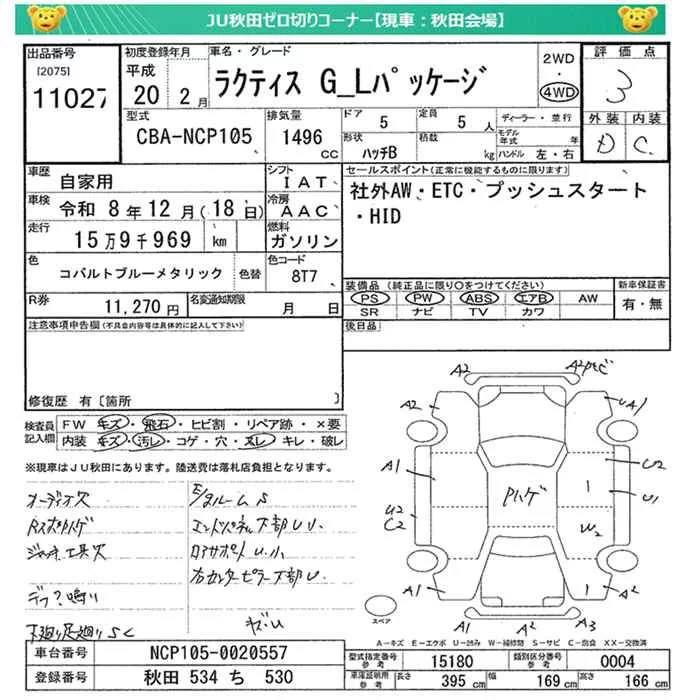 JU秋田ゼロ切りコーナー【現車：秋田会場】
出品番号 [2075] 11027
初度登録年月 平成 20年 2月
車名・グレード ラクティス G_Lパッケージ
2WD 4WD
評価点 3
外装 D 内装 C
型式 CBA-NCP105
排気量 1496 cc
ドア 5 定員 5 人
形状 ハッチB 積載 kg
ディーラー・並行
モデル年式 年
ハンドル 左・右
車歴 自家用
シフト IAT
車検 令和 8年 12月(18日)
冷房 AAC
走行 15万9千969 km
燃料 ガソリン
色 コバルトブルーメタリック 色替
色コード 8T7
R券 11,270円 名変通知期限 月 日
セールスポイント(正常に機能するものに限ります)
社外AW・ETC・プッシュスタート
・HID
装備品(純正品に限り○をつけてください) 新車保証書
PS PW ABS エアB AW 有・無
SR ナビ TV カワ
後日品
注意事項申告欄(不具合内容等は具体的に記入して下さい)
修復歴 有〔箇所 〕
検査員記入欄 FW キズ・飛石・ヒビ割・リペア跡・×要
内装 キズ・汚レ・コゲ・穴・スレ・キレ・破レ
※現車はJU秋田にあります。陸送費は落札店負担となります。
オーディオ欠
ジャッキ工具欠
エンドパネル下部U小
右センターピラー下部U
下廻り足廻りSC
A2
A2
UA1
A1
U2
C2
U1
U2
C2
Pハゲ
W2
A1
A1
A2
A3
A2
スペア
A－キズ E－エクボ U－凹み W－補修跡 S－サビ C－腐食 XX－交換済
車台番号 NCP105-0020557
登録番号 秋田 534 ち 530
型式指定番号 参考 15180 類別区分番号 参考 0004
車庫証明用 参考 長さ 395 cm 幅 169 cm 高さ 166 cm